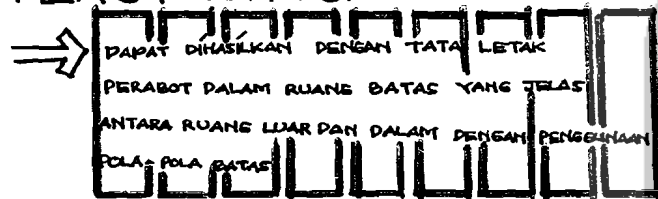 DAPAT DIHASILKAN DENGAN TATA LETAK
PERABOT DALAM RUANG BATAS YANG JELAS
ANTARA RUANG LUAR DAN DALAM DENGAN PENGGUNAAN
POLA-POLA BATAS